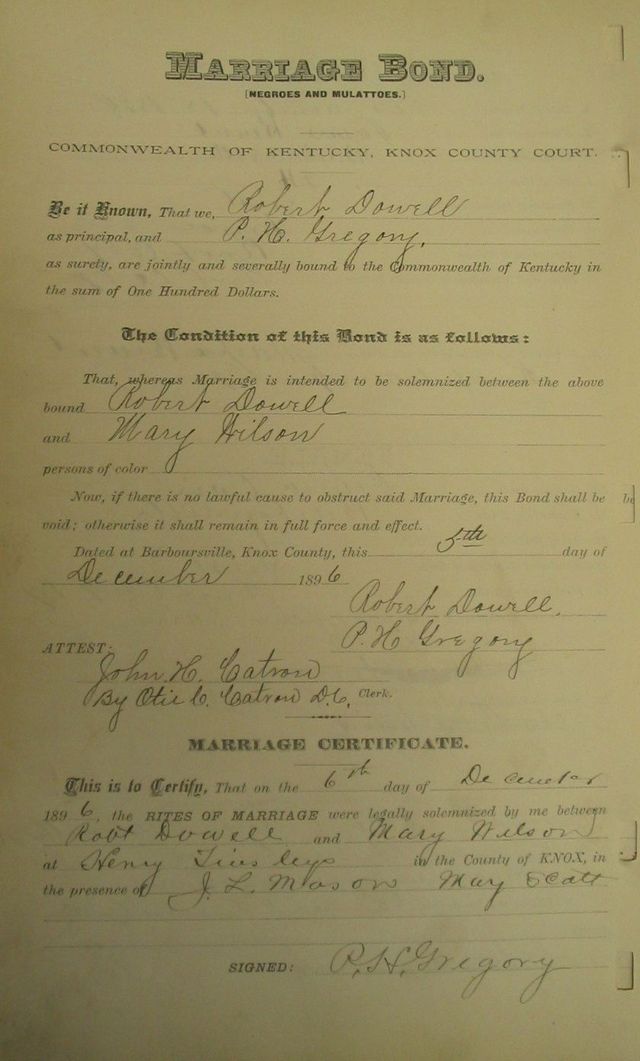 MARRIAGE BOND.
[NEGROES AND MULATTOES.]
COMMONWEALTH OF KENTUCKY, KNOX COUNTY COURT.
Be it Known, That we, Robert Dowell
as principal, and P. H. Gregory,
as surety, are jointly and severally bound to the Commonwealth of Kentucky in
the sum of One Hundred Dollars.
The Condition of this Bond is as follows:
That, whereas Marriage is intended to be solemnized between the above
bound Robert Dowell
and Mary Wilson
persons of color
Now, if there is no lawful cause to obstruct said Marriage, this Bond shall be
void; otherwise it shall remain in full force and effect.
Dated at Barboursville, Knox County, this 5th day of
December 1896
Robert Dowell.
P. H Gregory
ATTEST:
John H. Catron
By Otis C. Catron D.C, Clerk.
MARRIAGE CERTIFICATE.
This is to Certify, That on the 6th day of December
1896, the RITES OF MARRIAGE were legally solemnized by me between
Robt Dowell and Mary Wilson
at Henry Tinsleys in the County of KNOX, in
the presence of J. L. Mason May Scott
SIGNED: P. H. Gregory